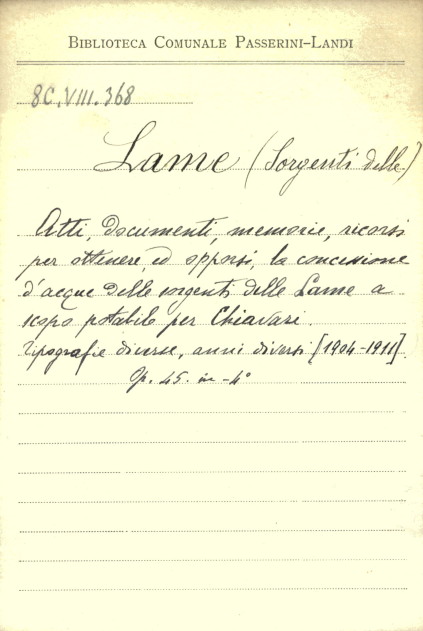 BIBLIOTECA COMUNALE PASSERINI-LANDI
8C.VIII.368
Lame (Sorgenti delle)
Atti, documenti, memorie, ricorsi
per ottenere, ed opporsi, la concessione
d'acque delle sorgenti delle Lame a
scopo potabile per Chiavari.
Tipografie diverse, anni diversi [1904-1911].
Op. 45. in-4°